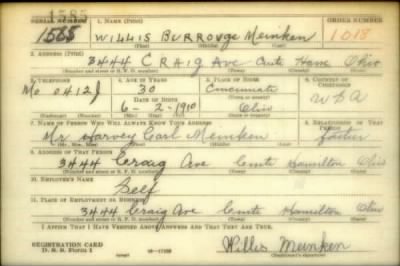 1585
SERIAL NUMBER 1. NAME (Print) ORDER NUMBER
1585 WILLIS BURROUGE Meinken 1013
(First) (Middle) (Last)
2. ADDRESS (Print)
3444 CRAIG Ave Ohio
(Number and street or R. F. D. number) (Town) (County) (State)
3. TELEPHONE 4. AGE IN YEARS 5. PLACE OF BIRTH 6. COUNTRY OF CITIZENSHIP
Mo 0412J 30 Cincinnati
DATE OF BIRTH (Town or county)
6-2-1910 Ohio USA
(Exchange) (Number) (Mo.) (Day) (Yr.) (State or country)
7. NAME OF PERSON WHO WILL ALWAYS KNOW YOUR ADDRESS 8. RELATIONSHIP OF THAT PERSON
Mr Harvey Carl Meinken
(Mr., Mrs., Miss) (First) (Middle) (Last)
9. ADDRESS OF THAT PERSON
3444 Craig Ave Hamilton Ohio
(Number and street or R. F. D. number) (Town) (County) (State)
10. EMPLOYER'S NAME
Self
11. PLACE OF EMPLOYMENT OR BUSINESS
3444 Craig Ave Hamilton Ohio
(Number and street or R. F. D. number) (Town) (County) (State)
I AFFIRM THAT I HAVE VERIFIED ABOVE ANSWERS AND THAT THEY ARE TRUE.
REGISTRATION CARD
D. S. S. Form 1
Willis Meinken
(Registrant's signature)